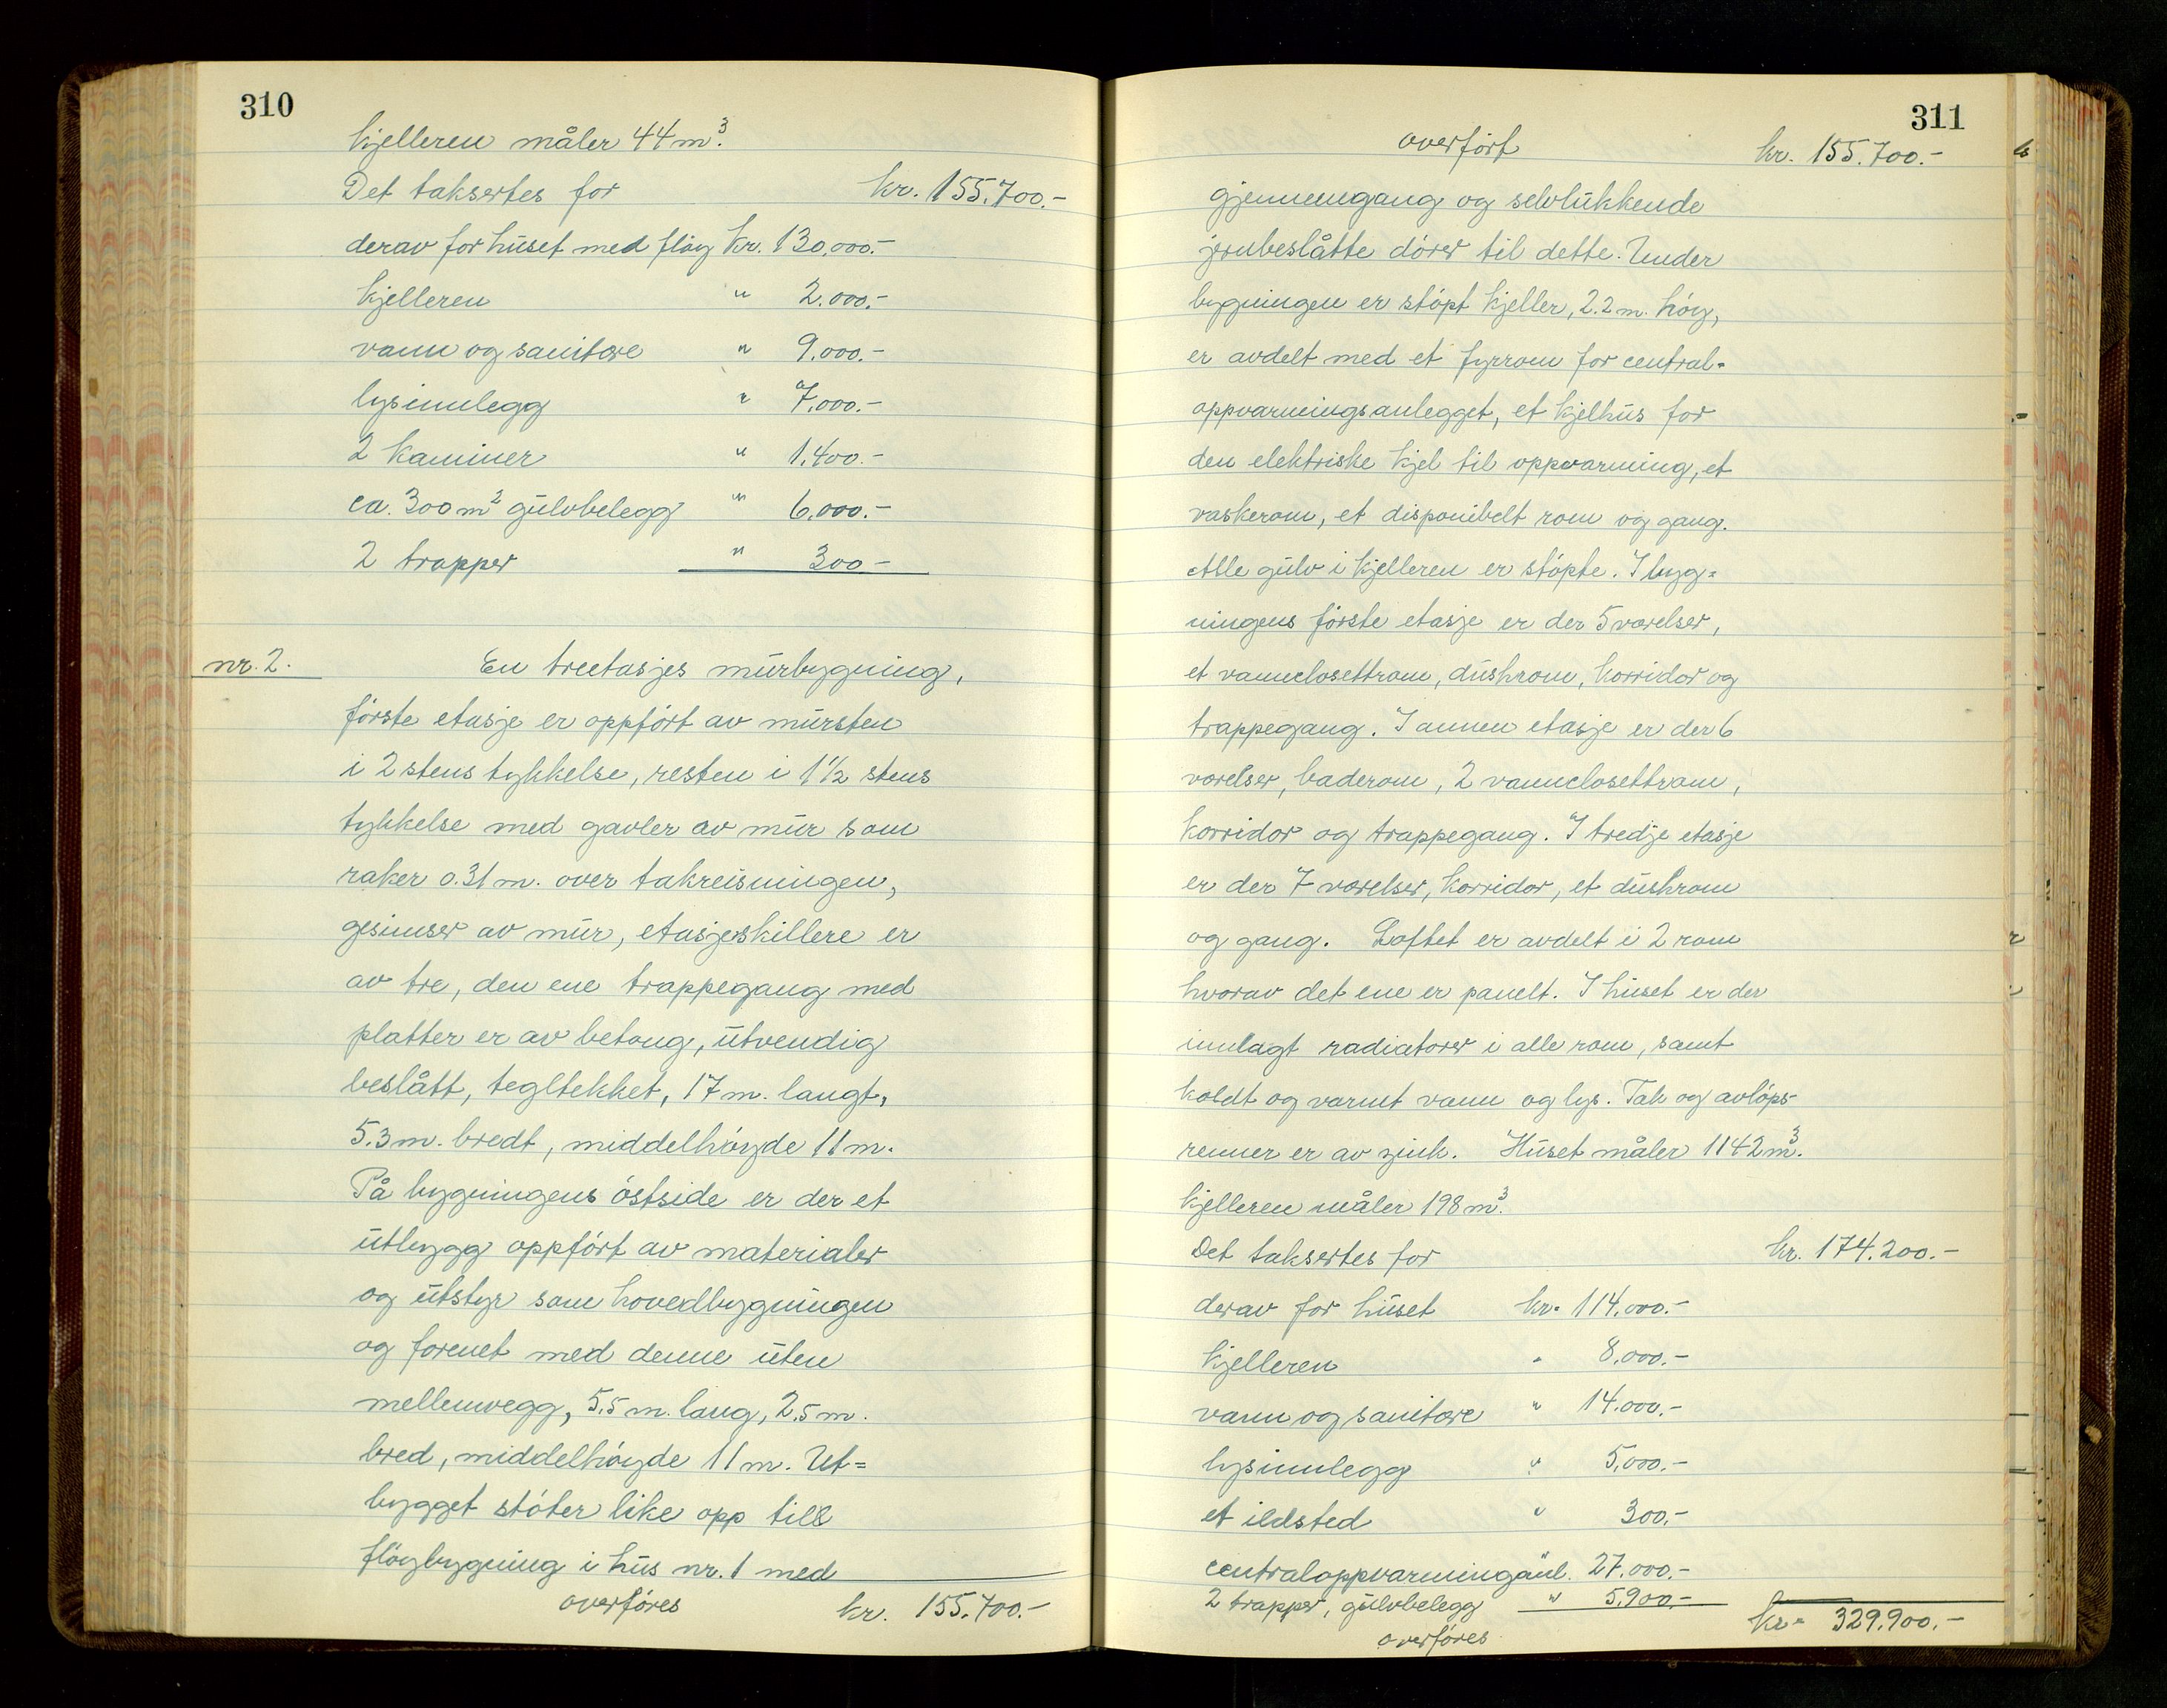 310
kjelleren måler 44 m³.
Det taksertes for kr. 155.700.-
derav for huset med fløy kr. 130.000.-
kjelleren " 2.000.-
vann og sanitære " 9.000.-
lysinnlegg " 7.000.-
2 kaminer " 1.400.-
ca. 300 m² gulvbelegg " 6.000.-
2 trapper " 300-
nr. 2. En treetasjes murbygning,
første etasje er oppført av mursten
i 2 stens tykkelse, resten i 1½ stens
tykkelse med gavler av mur som
raker 0.31 m. over takreisningen,
gesimser av mur, etasjeskillere er
av tre, den ene trappegang med
platter er av betong, utvendig
beslått, tegltekket, 17 m. langt,
5.3 m. bredt, middelhøyde 11 m.
På bygningens østside er der et
utbygg oppført av materialer
og utstyr som hovedbygningen
og forenet med denne uten
mellemvegg, 5.5 m. lang, 2.5 m.
bred, middelhøyde 11 m. Ut=
bygget støter like opp till
fløybygning i hus nr. 1 med
overføres kr. 155.700.-
311
overført kr. 155.700.-
gjennemgang og selvlukkende
jernbeslåtte dører til dette. Under
bygningen er støpt kjeller, 2.2 m. høy,
er avdelt med et fyrrom for central=
oppvarmingsanlegget, et kjelhus for
den elektriske kjel til oppvarming, et
vaskerom, et disponibelt rom og gang.
Alle gulv i kjelleren er støpte. I byg=
ningens første etasje er der 5 værelser,
et vannclosettrom, dushrom, korridor og
trappegang. I annen etasje er der 6
værelser, baderom, 2 vannclosettrom,
korridor og trappegang. I tredje etasje
er der 7 værelser, korridor, et dushrom
og gang. Loftet er avdelt i 2 rom
hvorav det ene er panelt. I huset er der
innlagt radiatorer i alle rom, samt
koldt og varmt vann og lys. Tak og avløps-
renner er av zink. Huset måler 1142 m³.
kjelleren måler 198 m³.
Det taksertes for kr. 174.200.-
derav for huset kr. 114.000.-
kjelleren " 8.000.-
vann og sanitære " 14.000.-
lysinnlegg " 5.000.-
et ildsted " 300.-
centraloppvarmingsanl. " 27.000.-
2 trapper, gulvbelegg " 5.900.-
overføres kr. 329.900.-